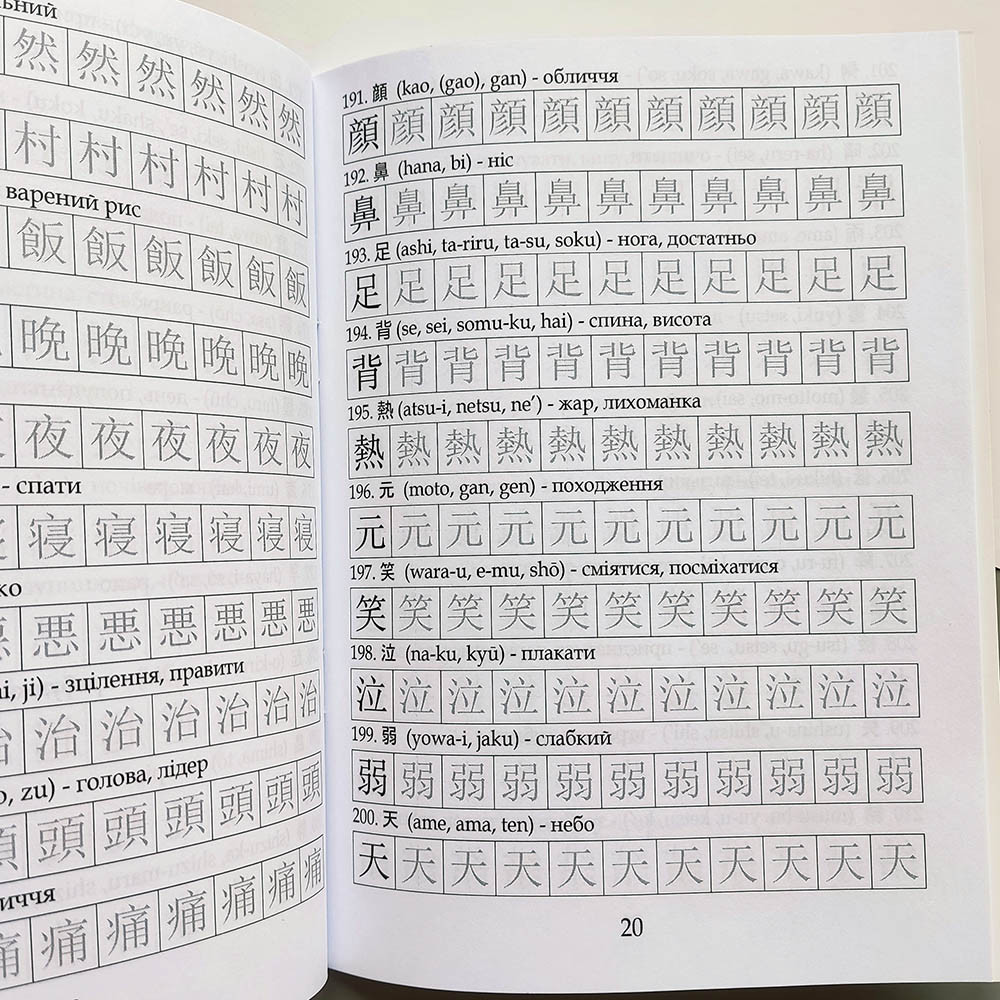 ьний
然 然 然 然 然 然
村 村 村 村 村 村
варений рис
飯 飯 飯 飯 飯 飯
晩 晩 晩 晩 晩 晩
夜 夜 夜 夜 夜 夜
- спати
寝 寝 寝 寝 寝 寝
ко
悪 悪 悪 悪 悪 悪
i, ji) - зцілення, правити
治 治 治 治 治 治
o, zu) - голова, лідер
頭 頭 頭 頭 頭 頭
иччя
痛 痛 痛 痛 痛 痛
191. 顔 (kao, (gao), gan) - обличчя
顔 顔 顔 顔 顔 顔 顔 顔 顔 顔 顔
192. 鼻 (hana, bi) - ніс
鼻 鼻 鼻 鼻 鼻 鼻 鼻 鼻 鼻 鼻 鼻
193. 足 (ashi, ta-riru, ta-su, soku) - нога, достатньо
足 足 足 足 足 足 足 足 足 足 足
194. 背 (se, sei, somu-ku, hai) - спина, висота
背 背 背 背 背 背 背 背 背 背 背
195. 熱 (atsu-i, netsu, ne’) - жар, лихоманка
熱 熱 熱 熱 熱 熱 熱 熱 熱 熱 熱
196. 元 (moto, gan, gen) - походження
元 元 元 元 元 元 元 元 元 元 元
197. 笑 (wara-u, e-mu, shō) - сміятися, посміхатися
笑 笑 笑 笑 笑 笑 笑 笑 笑 笑 笑
198. 泣 (na-ku, kyū) - плакати
泣 泣 泣 泣 泣 泣 泣 泣 泣 泣 泣
199. 弱 (yowa-i, jaku) - слабкий
弱 弱 弱 弱 弱 弱 弱 弱 弱 弱 弱
200. 天 (ame, ama, ten) - небо
天 天 天 天 天 天 天 天 天 天 天
20